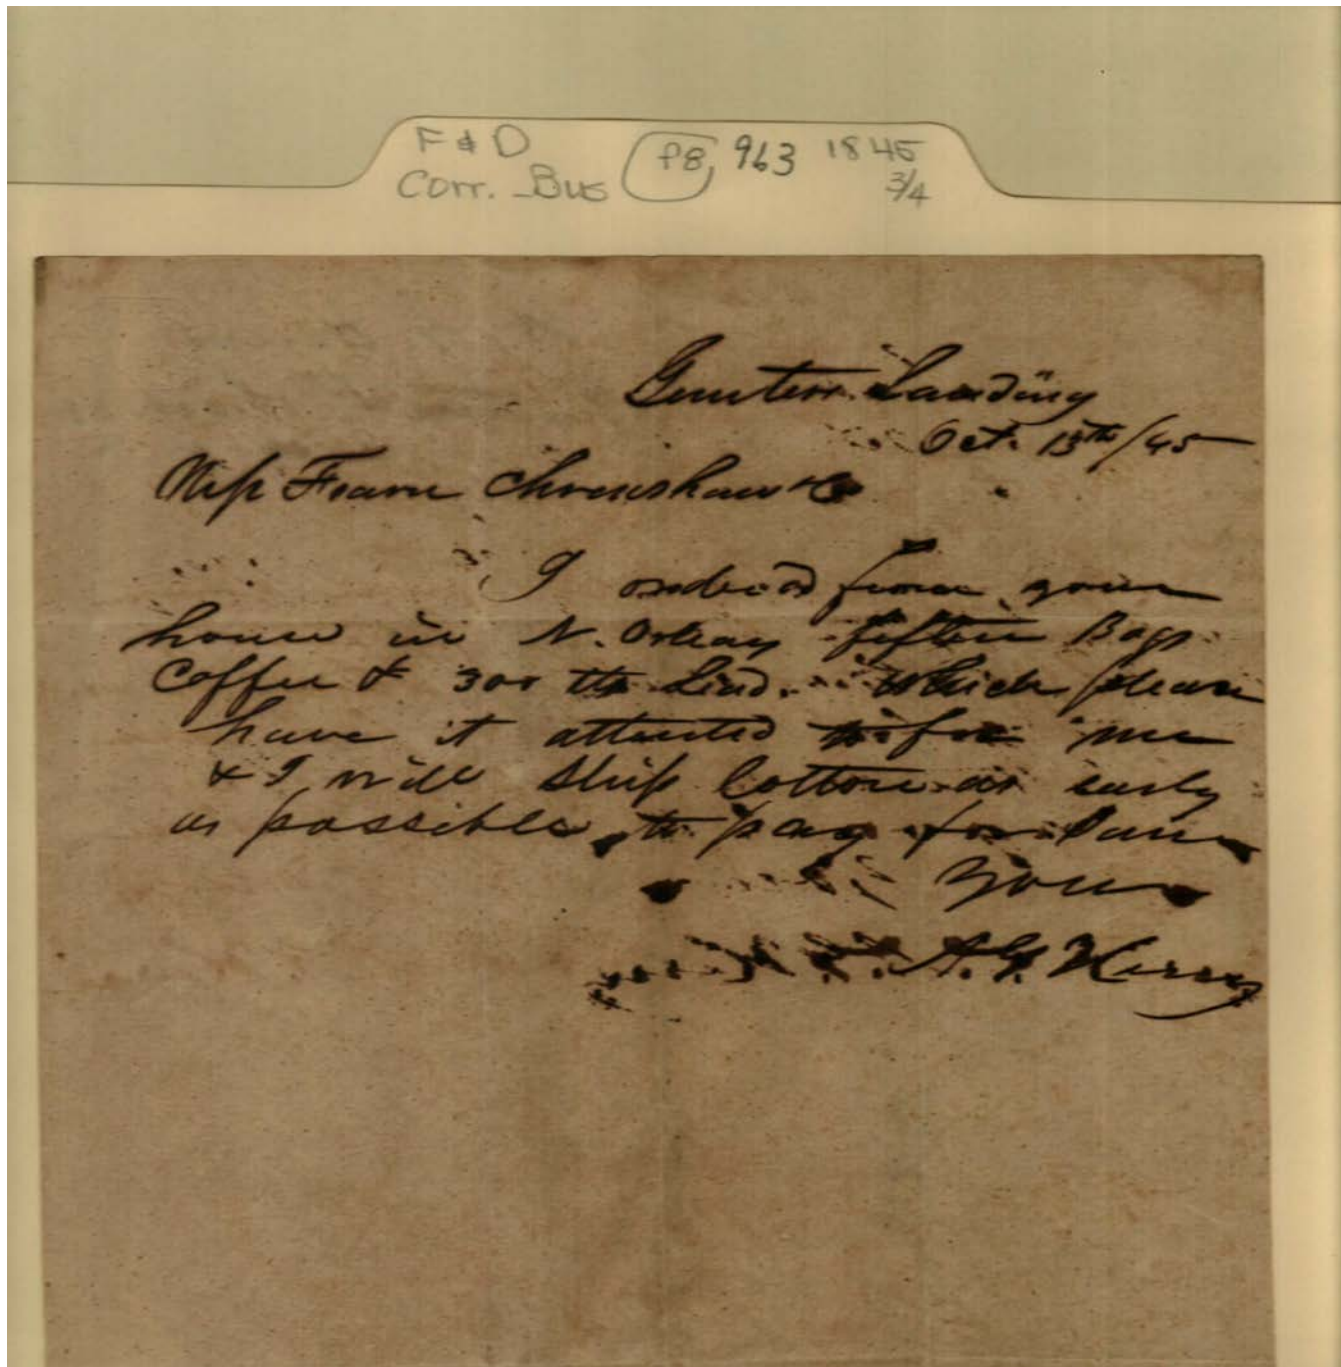 F & D
Corr. Bus P8, 963 1845
3/4
Gunters Landing
Oct. 13th/45
Mess Fearn Chrenshaw & Co
I orderd from your
house in N. Orleans fifteen Bags
Coffee & 300 lbs Lead. which please
have it attented to for me
& I will Ship Cotton as early
as possible to pay for Same
Yours
A. G. Henry